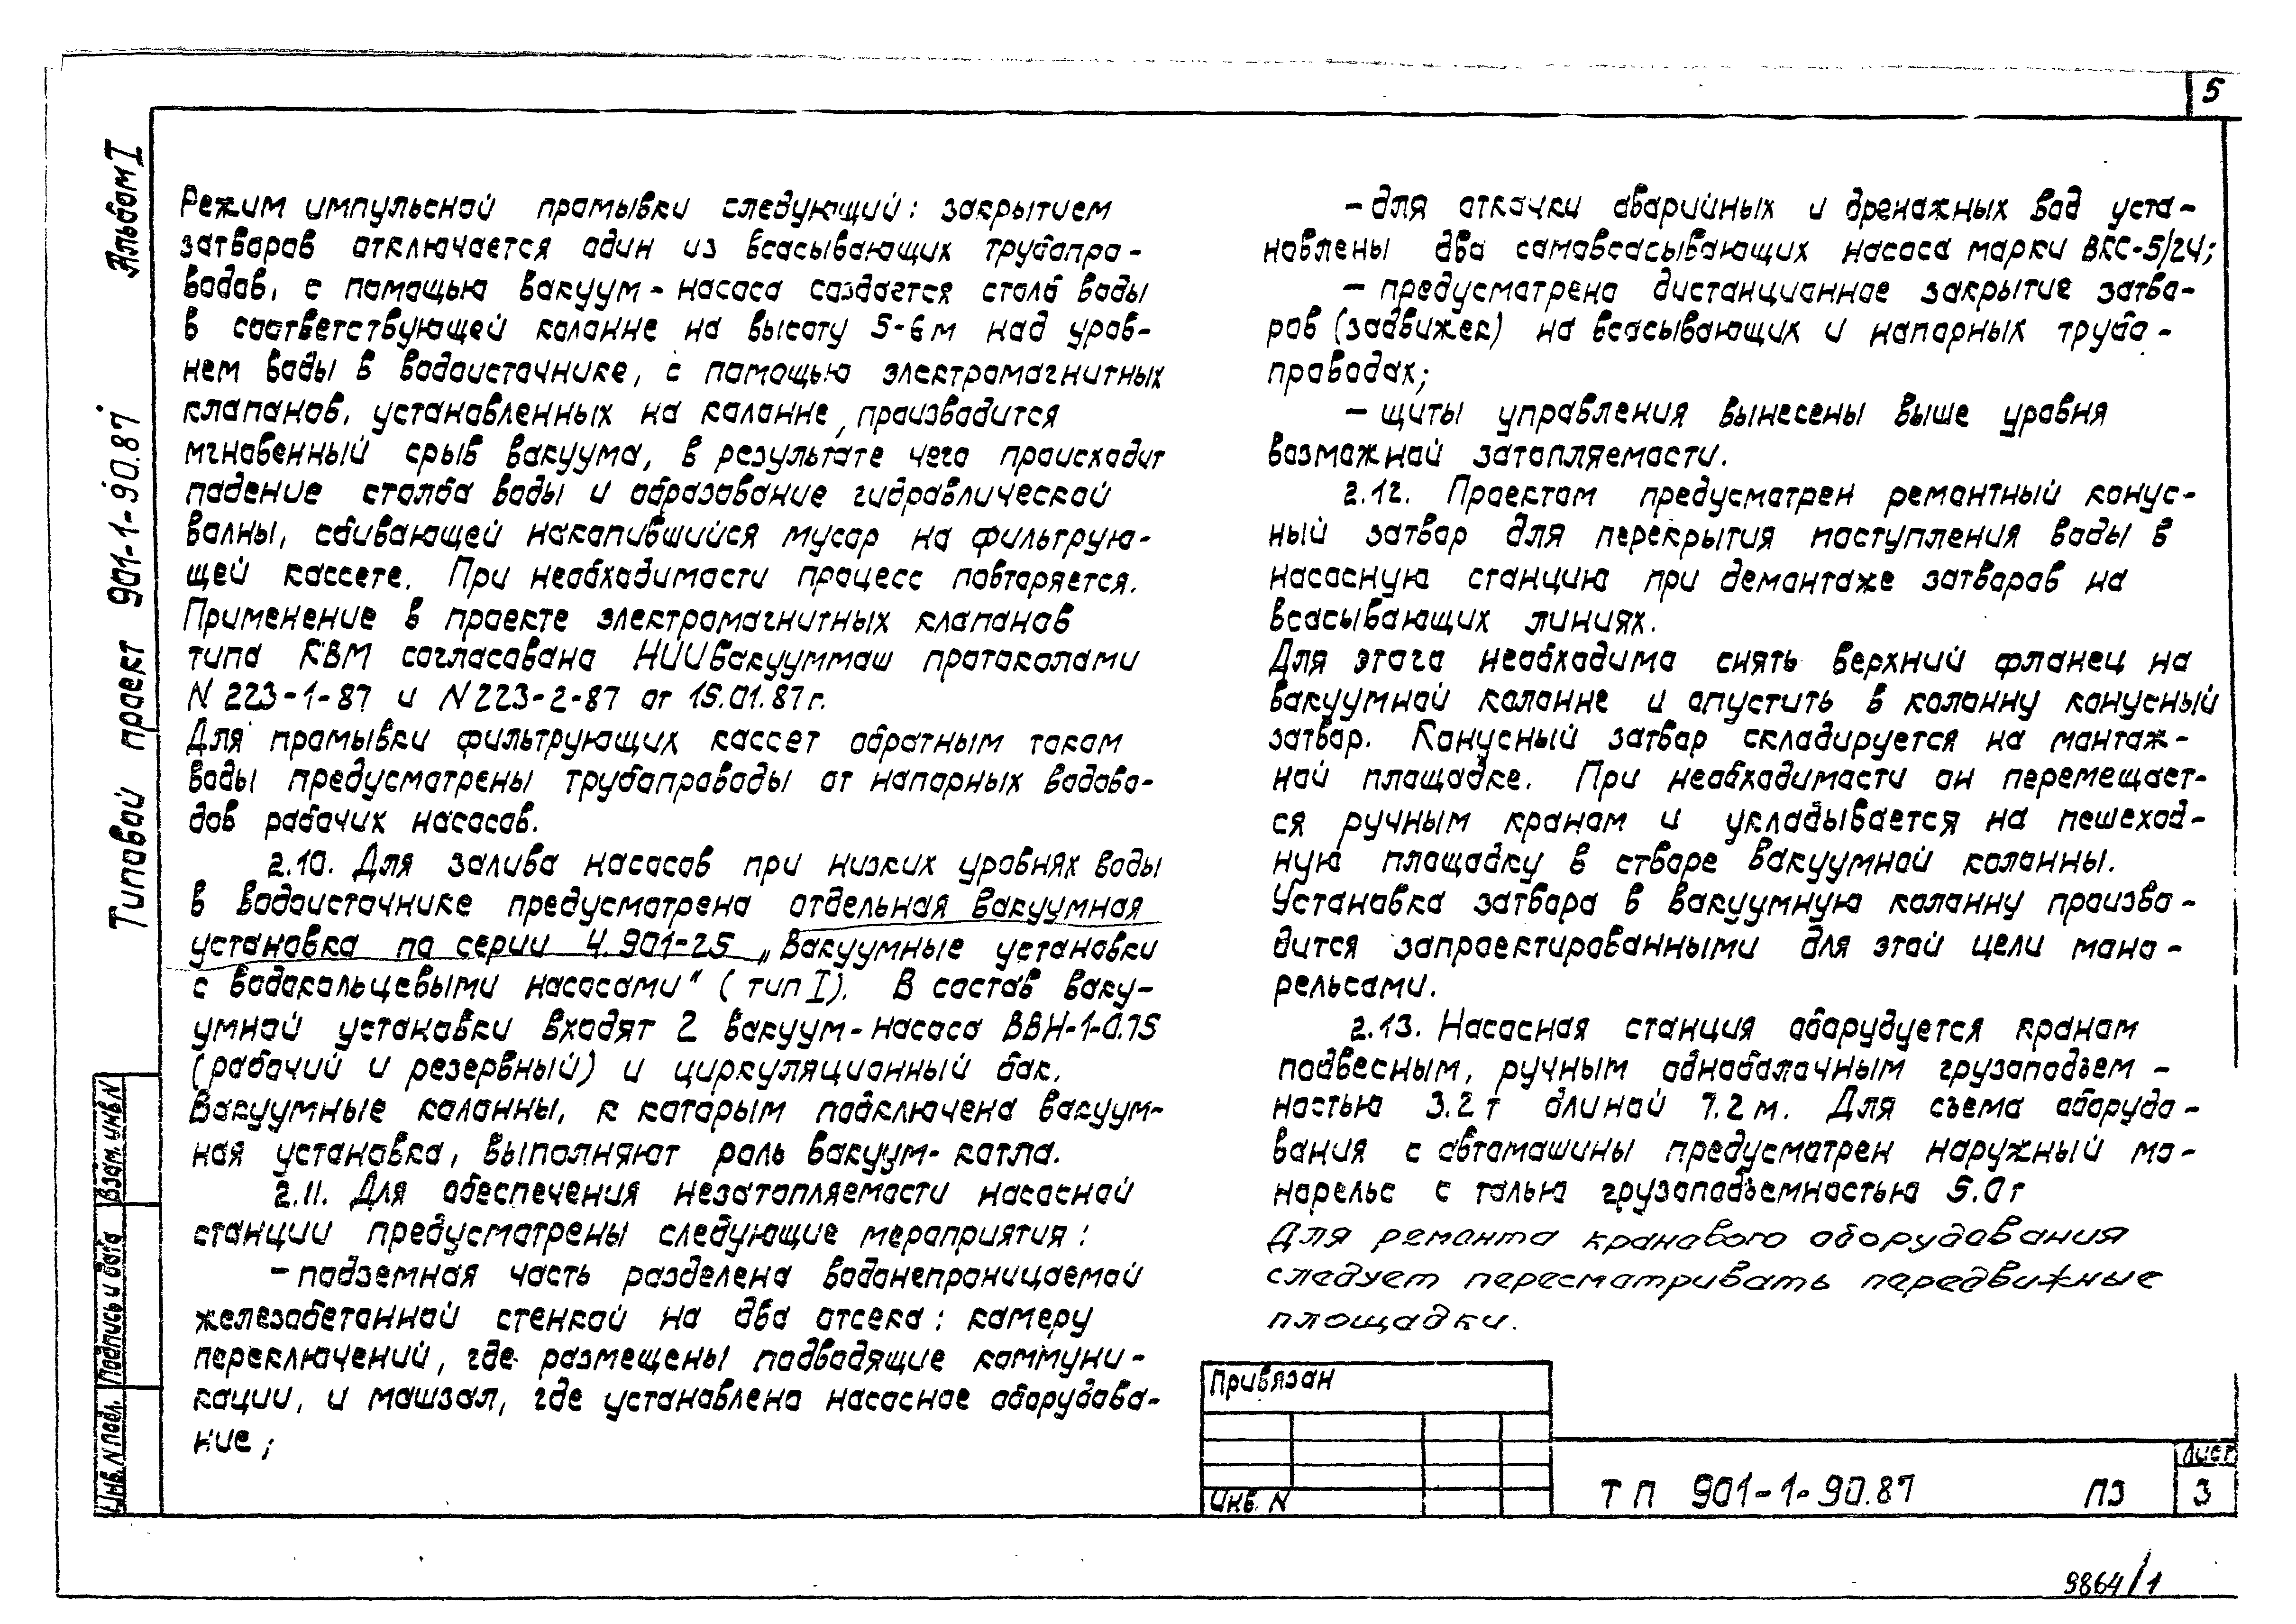 5
Альбом I
Типовой проект 901-1-90.87
Режим импульсной промывки следующий: закрытием
затворов отключается один из всасывающих трубопро-
водов, с помощью вакуум-насоса создается столб воды
в соответствующей колонне на высоту 5-6 м над уров-
нем воды в водоисточнике, с помощью электромагнитных
клапанов, установленных на колонне, производится
мгновенный срыв вакуума, в результате чего происходит
падение столба воды и образование гидравлической
волны, сбивающей накопившийся мусор на фильтрую-
щей кассете. При необходимости процесс повторяется.
Применение в проекте электромагнитных клапанов
типа КВМ согласовано НИИвакууммаш протоколами
N 223-1-87 и N 223-2-87 от 15.01.87 г.
Для промывки фильтрующих кассет обратным током
воды предусмотрены трубопроводы от напорных водово-
дов рабочих насосов.
2.10. Для залива насосов при низких уровнях воды
в водоисточнике предусмотрена отдельная вакуумная
установка по серии 4.901-25 „Вакуумные установки
с водокольцевыми насосами" (тип I). В состав ваку-
умной установки входят 2 вакуум-насоса ВВН-1-0.75
(рабочий и резервный) и циркуляционный бак.
Вакуумные колонны, к которым подключена вакуум-
ная установка, выполняют роль вакуум-котла.
2.11. Для обеспечения незатопляемости насосной
станции предусмотрены следующие мероприятия:
- подземная часть разделена водонепроницаемой
железобетонной стенкой на два отсека: камеру
переключений, где размещены подводящие коммуни-
кации, и машзал, где установлено насосное оборудова-
ние;
- для откачки аварийных и дренажных вод уста-
новлены два самовсасывающих насоса марки ВКС-5/24;
- предусмотрено дистанционное закрытие затво-
ров (задвижек) на всасывающих и напорных трубо-
проводах;
- щиты управления вынесены выше уровня
возможной затопляемости.
2.12. Проектом предусмотрен ремонтный конус-
ный затвор для перекрытия поступления воды в
насосную станцию при демонтаже затворов на
всасывающих линиях.
Для этого необходимо снять верхний фланец на
вакуумной колонне и опустить в колонну конусный
затвор. Конусный затвор складируется на монтаж-
ной площадке. При необходимости он перемещает-
ся ручным краном и укладывается на пешеход-
ную площадку в створе вакуумной колонны.
Установка затвора в вакуумную колонну произво-
дится запроектированными для этой цели моно-
рельсами.
2.13. Насосная станция оборудуется краном
подвесным, ручным однобалочным грузоподъем-
ностью 3.2 т длиной 7.2 м. Для съема оборудо-
вания с автомашины предусмотрен наружный мо-
норельс с талью грузоподъемностью 5.0 т
Для ремонта кранового оборудования
следует пересматривать передвижные
площадки.
Взам. инв N
Подпись и дата
Инв. N подл.
Привязан
Инв. N
ТП 901-1-90.87 ПЗ
Лист
3
9864/1